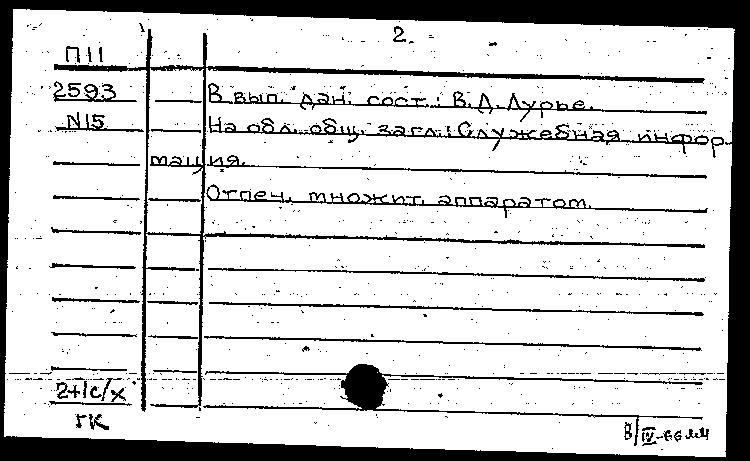 2.
П11
2593
В вып. дан. сост.: В.Д. Лурье.
N15
На обл. общ. загл.: Служебная инфор-
мация.
Отпеч. множит. аппаратом.
2+1с/х
ГК
8/IV-66 мм